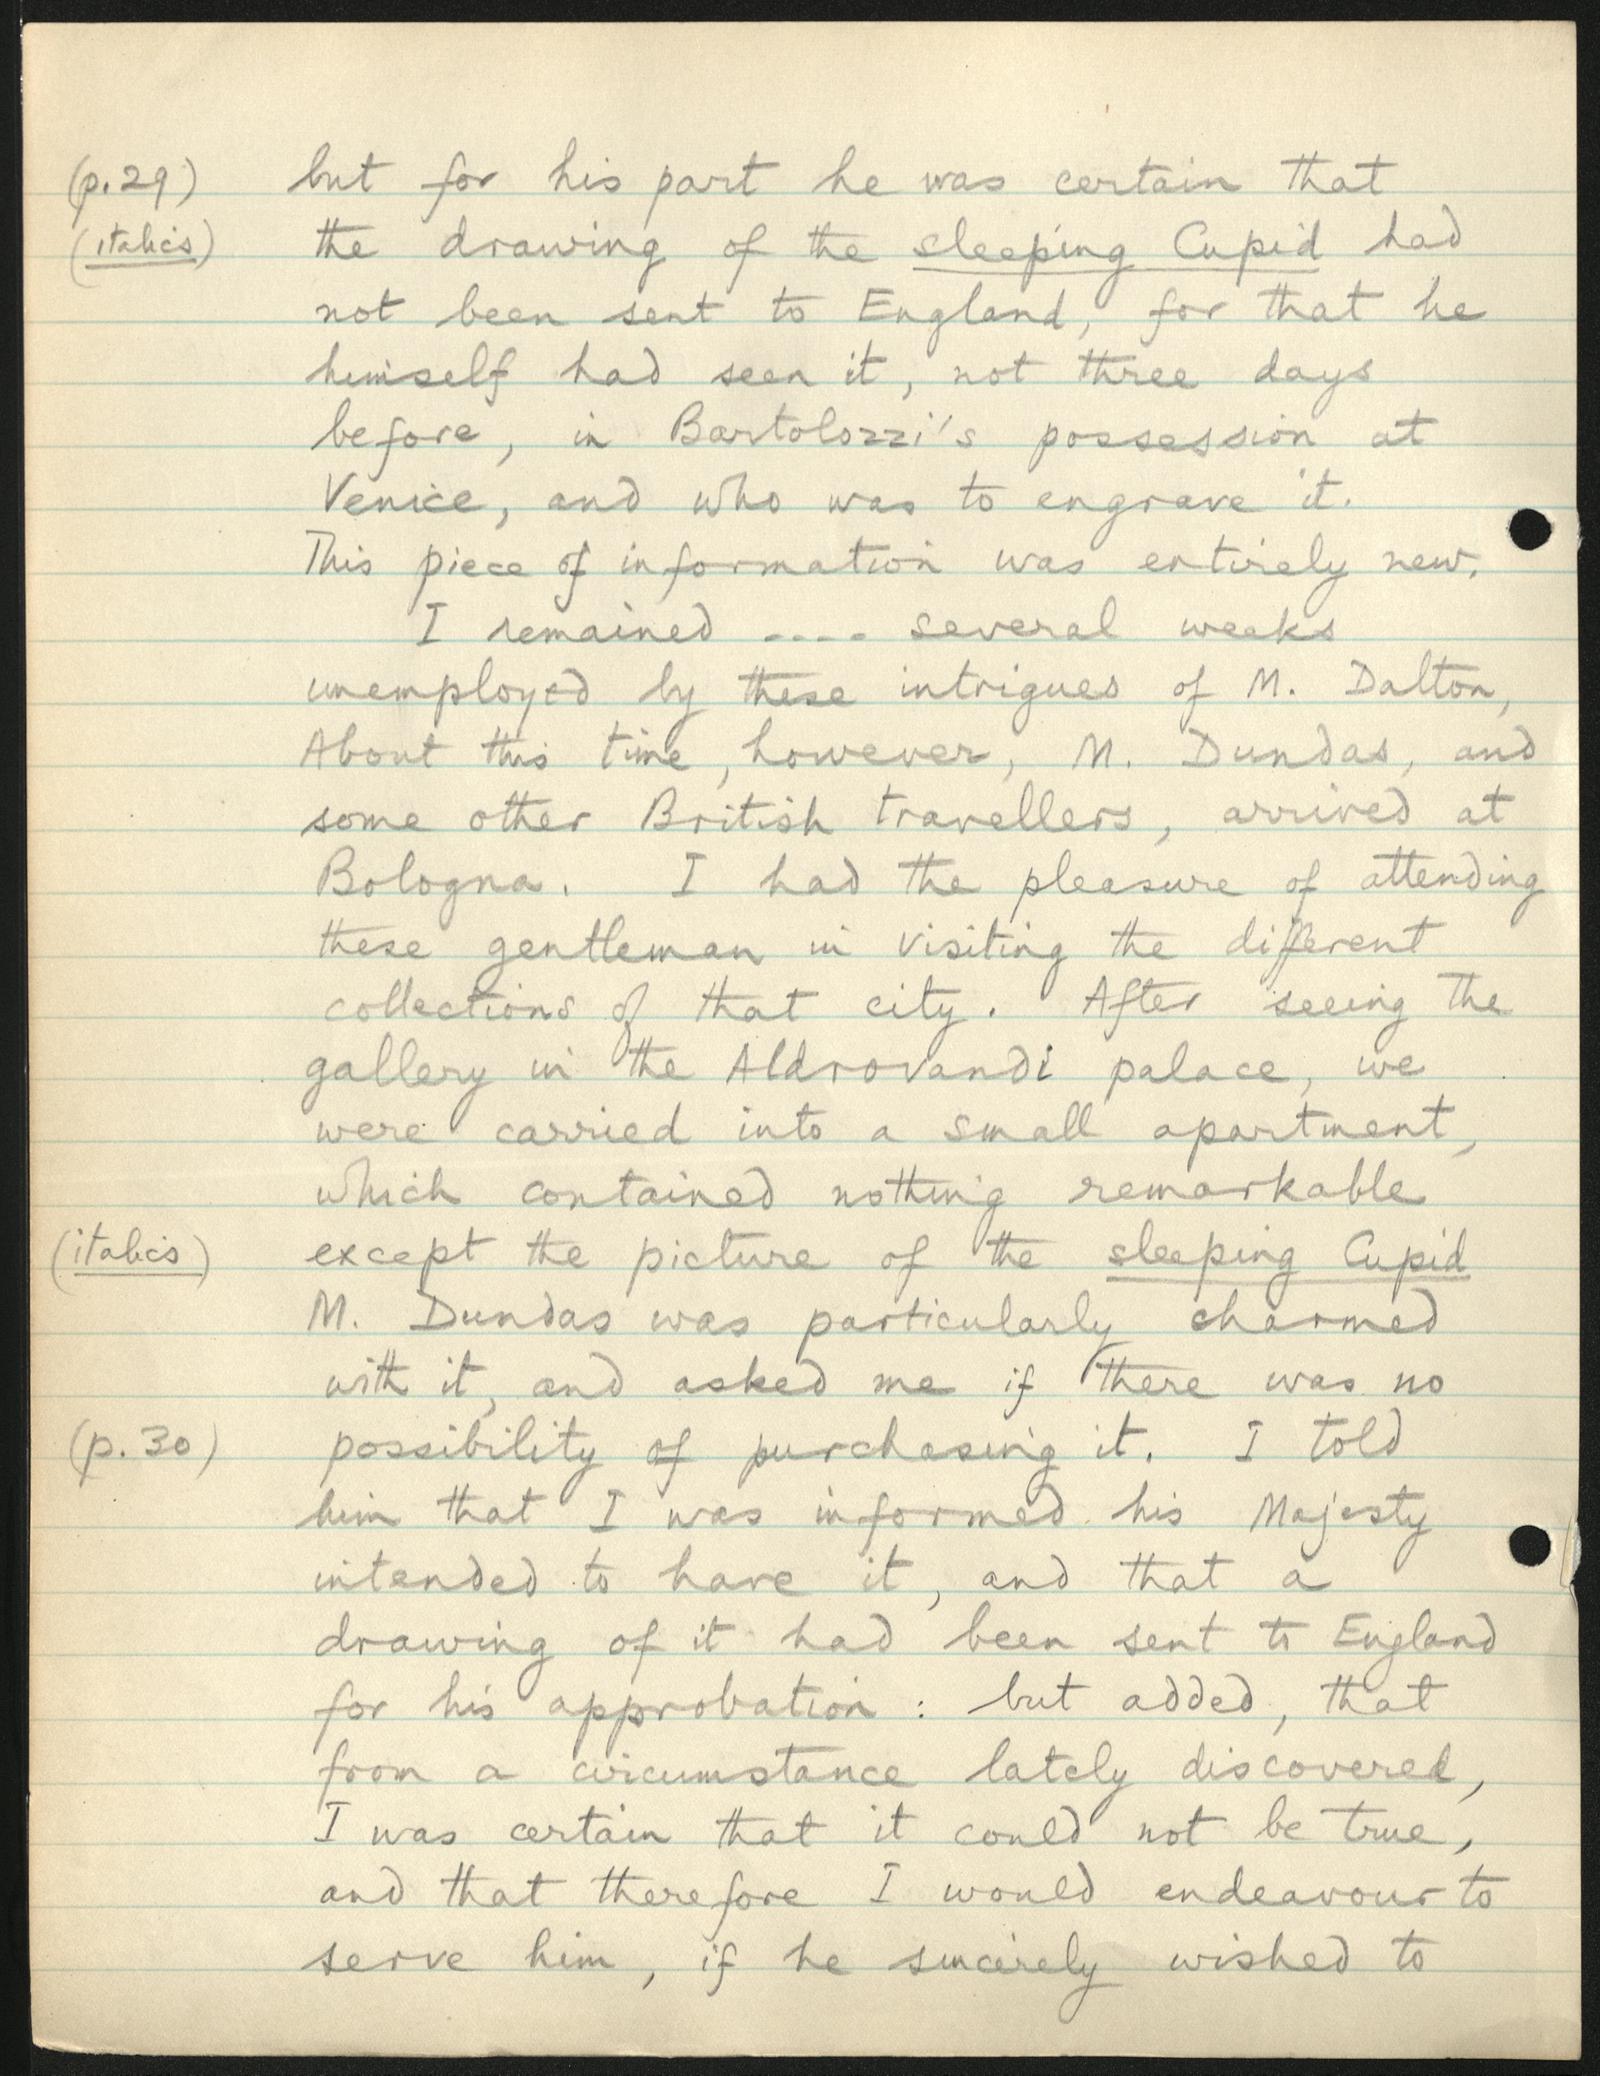 (p.29) but for his part he was certain that
(italics) the drawing of the sleeping Cupid had
not been sent to England, for that he
himself had seen it, not three days
before, in Bartolozzi's possession at
Venice, and who was to engrave it.
This piece of information was entirely new.
I remained .... several weeks
unemployed by these intrigues of M. Dalton,
About this time, however, M. Dundas, and
some other British travellers, arrived at
Bologna. I had the pleasure of attending
these gentleman in visiting the different
collections of that city. After seeing the
gallery in the Aldrovandi palace, we
were carried into a small apartment,
which contained nothing remarkable
(italics) except the picture of the sleeping Cupid
M. Dundas was particularly charmed
with it, and asked me if there was no
(p. 30) possibility of purchasing it. I told
him that I was informed his Majesty
intended to have it, and that a
drawing of it had been sent to England
for his approbation : but added, that
from a circumstance lately discovered,
I was certain that it could not be true,
and that therefore I would endeavour to
serve him, if he sincerely wished to